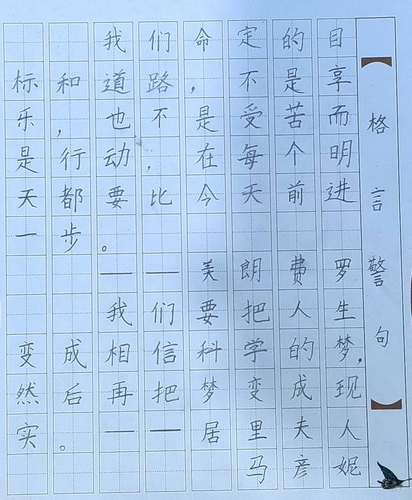 我们命定的目
标和道路，不是享
乐，也不是受苦而
是行动，在每个明
天都要比今天前进
一步。
——美朗费罗
我们要把人生
变成相信科学的梦，
然后再把梦变成现
实。——居里夫人
马彦妮
【格言警句】